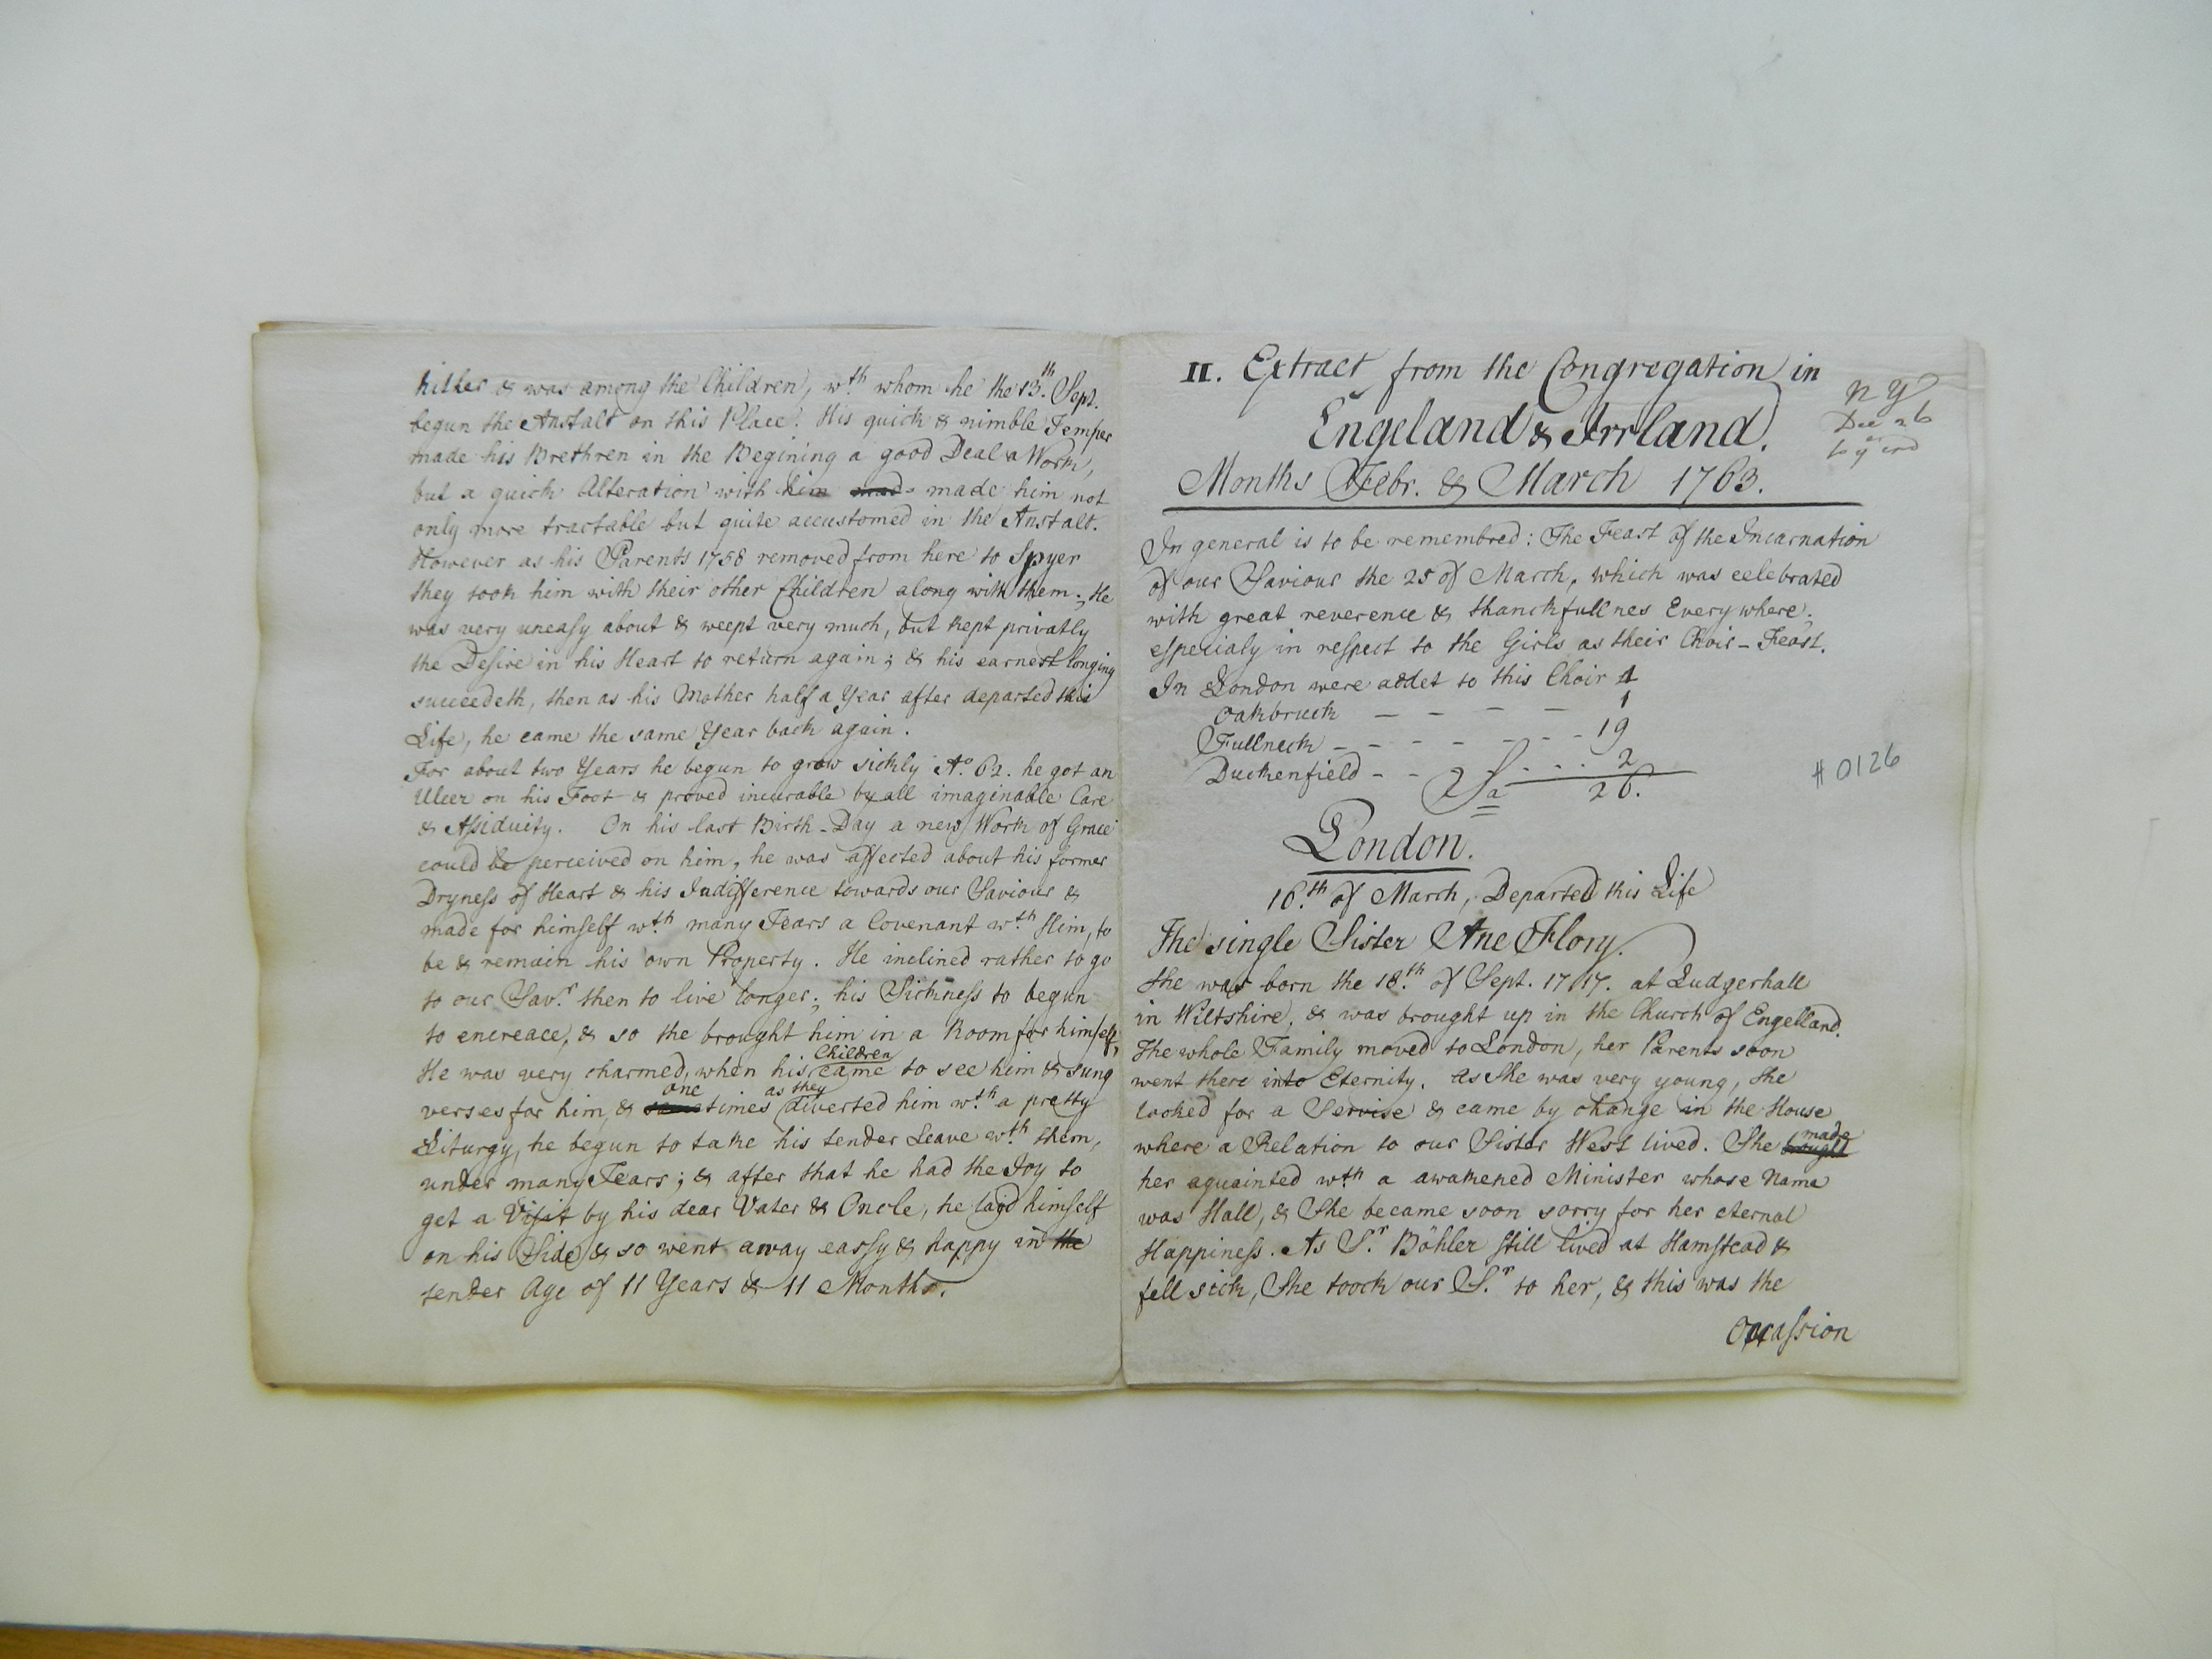 hitler & was among the Children, wth whom he the 13th Sept.
begun the Anstalt on this Place. His quick & nimble Temper
made his Brethren in the Begining a good Deal a Work,
but a quick Alteration with him made him not
only more tractable but quite accustomed in the Anstalt.
However as his Parents 1758 removed from here to Spyer
they took him with their other Children along with them; He
was very uneasy about & weept very much, but kept privatly
the Desire in his Heart to return again; & his earnest longing
succeedeth, then as his Mother half a Year after departed this
Life, he came the same Year back again.
For about two Years he begun to grow sickly Ao. 62. he got an
Ulcer on his Foot & proved incurable by all imaginable Care
& Assiduity. On his last Birth-Day a new Work of Grace
could be perceived on him, he was affected about his former
Dryness of Heart & his Indifference towards our Saviour &
made for himself wth many Tears a Covenant wth Him, to
be & remain his own Property. He inclined rather to go
to our Savr. then to live longer; his Sickness to begun
to encreace, & so the brought him in a Room for himself,
He was very charmed, when his Children came to see him & sung
verses for him, & one times as they diverted him wth a pretty
Liturgy, he begun to take his tender Leave wth them,
under many Tears; & after that he had the Joy to
get a Visit by his dear Vater & Oncle, he laid himself
on his Side & so went away eassy & happy in the
tender Age of 11 Years & 11 Months.
II. Extract from the Congregation in
Engeland & Irrland.
Months Febr. & March 1763.
N Y
Dec 26
In general is to be remembred: The Feast of the Incarnation
of our Saviour the 25 of March, which was celebrated
with great reverence & thanckfullnes Everywhere;
especialy in respect to the Girls as their Choir-Feast.
In London were addet to this Choir 4
Oakbruck - - - - 1
Fullneck - - - - - - 19
Duckenfield - - . . . 2
Sa 26.
# 0126
London.
16.th of March, Departed this Life
The single Sister Ane Flory.
She was born the 18.th of Sept. 1717. at Ludgerhall
in Wiltshire, & was brought up in the Church of Engelland.
The whole Family moved to London, her Parents soon
went there into Eternity. As She was very young, She
looked for a Servise & came by change in the House
where a Relation to our Sister West lived. She made
her aquainted wth a awakened Minister whose Name
was Hall, & She became soon sorry for her eternal
Happiness. As Sr. Böhler still lived at Hamstead &
fell sick, She toock our Sr. to her, & this was the
Occassion